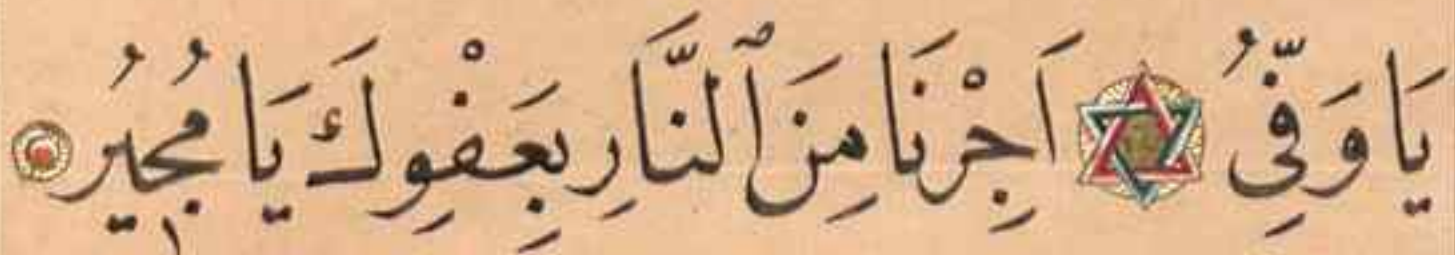 يَا وَفِّىُ اَجِرْنَا مِنَ ٱلنَّارِ بِعَفْوِكَ يَا مُجِيرُ